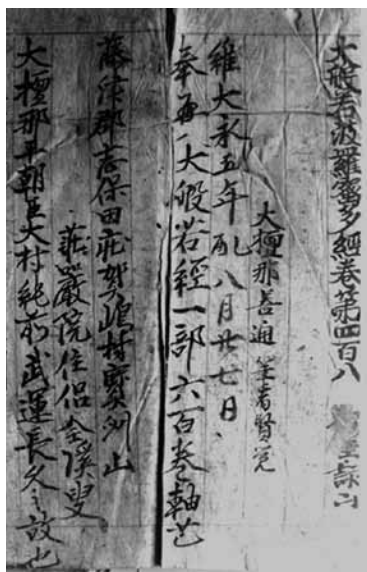 大般若波羅蜜多經卷第四百八
大檀那善通 筆者賢完
維大永五年乙酉八月廿七日
奉再一大般若經一部六百卷軸芒
藤津郡志保田庄賀嶋村寳州山
莊嚴院住侶全溪叟
大檀那平朝臣大村純前武運長久之故也